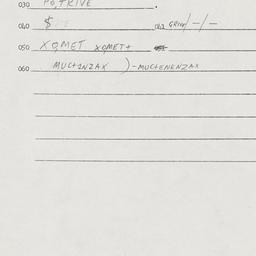 030 POTRIVE .
040 $ 041 GRIM/-/-
050 XOMET XOMET+
060 MUCTINZAX )-MUCTENENZAX